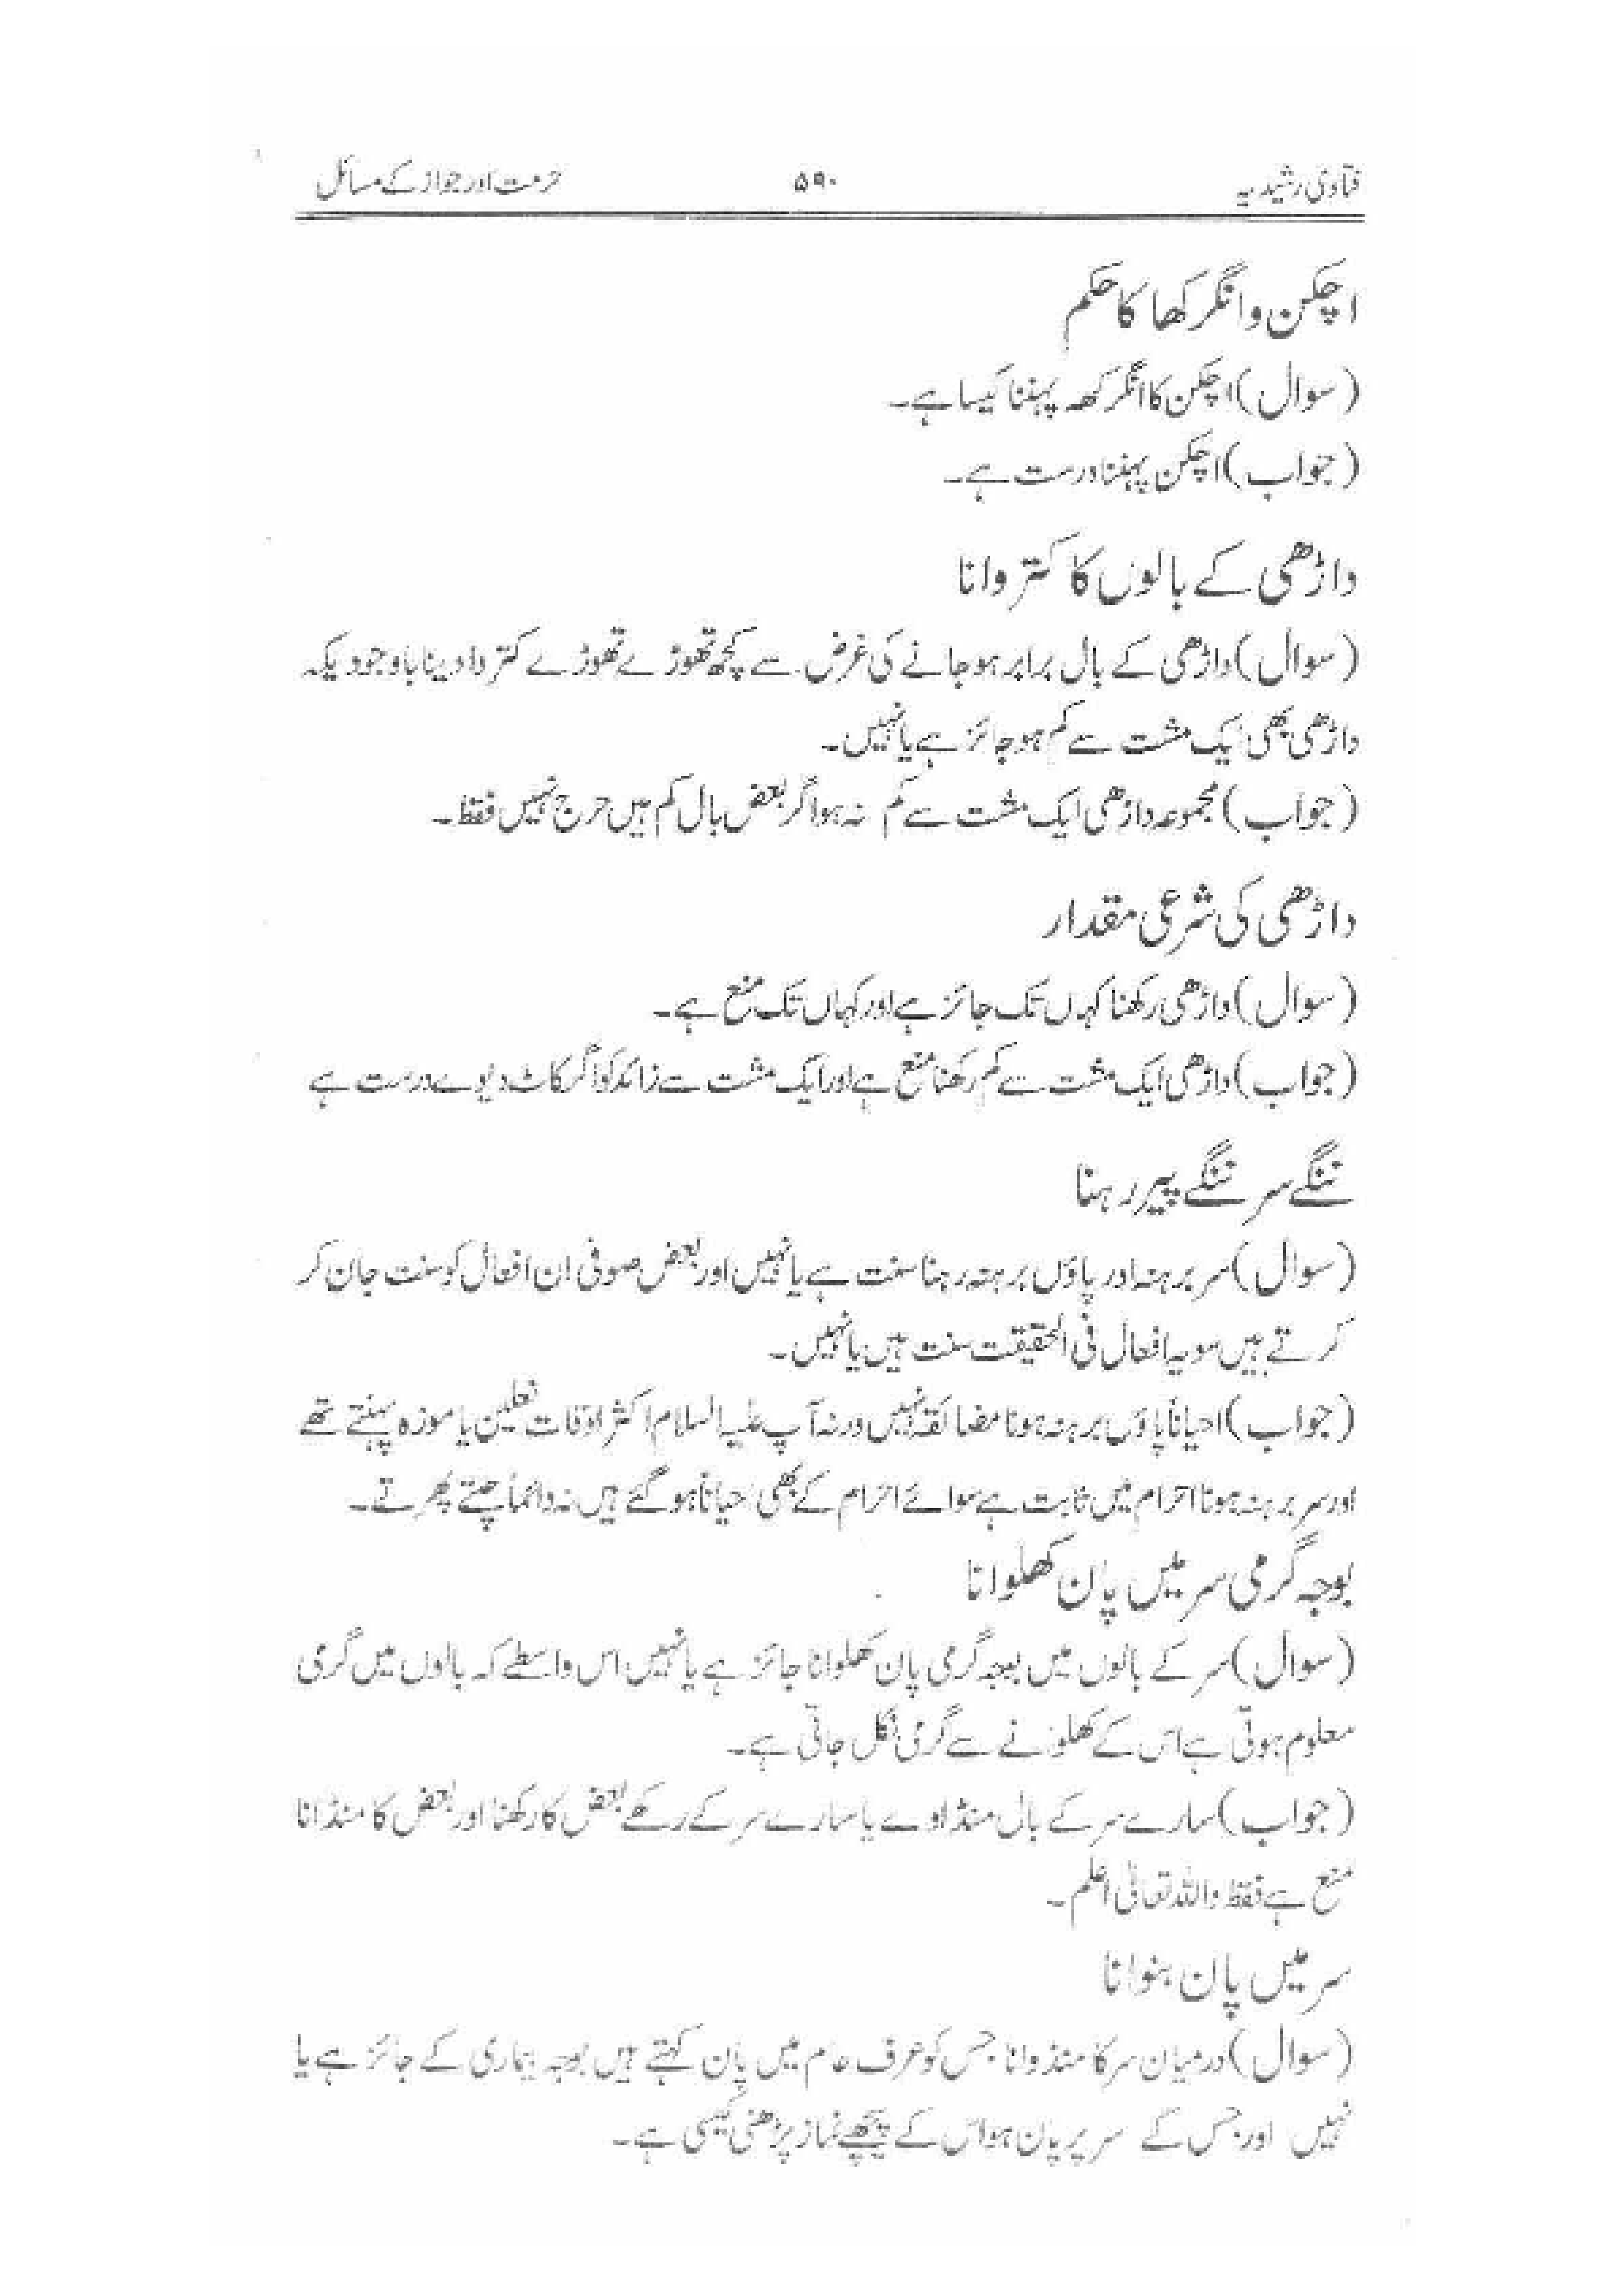 فتاویٰ رشیدیہ ۵۹۰ حرمت اور جواز کے مسائل
اچکن وانگرکھا کا حکم
(سوال) اچکن کا انگرکھہ پہننا کیسا ہے۔
(جواب) اچکن پہننا درست ہے۔
داڑھی کے بالوں کا کتروانا
(سوال) داڑھی کے بال برابر ہو جانے کی غرض سے کچھ تھوڑے تھوڑے کتروا دینا باوجودیکہ
داڑھی بھی ایک مشت سے کم ہو جائز ہے یا نہیں۔
(جواب) مجموعہ داڑھی ایک مشت سے کم نہ ہو اگر بعض بال کم ہیں حرج نہیں فقط۔
داڑھی کی شرعی مقدار
(سوال) داڑھی رکھنا کہاں تک جائز ہے اور کہاں تک منع ہے۔
(جواب) داڑھی ایک مشت سے کم رکھنا منع ہے اور ایک مشت سے زائد کو اگر کاٹ دیوے درست ہے
ننگے سر ننگے پیر رہنا
(سوال) سر برہنہ اور پاؤں برہنہ رہنا سنت ہے یا نہیں اور بعض صوفی ان افعال کو سنت جان کر
کرتے ہیں سو یہ افعال فی الحقیقت سنت ہیں یا نہیں۔
(جواب) احیاناً پاؤں برہنہ ہونا مضائقہ نہیں ورنہ آپ علیہ السلام اکثر اوقات نعلین یا موزہ پہنتے تھے
اور سر برہنہ ہونا احرام میں ثابت ہے سوائے احرام کے بھی احیاناً ہو گئے ہیں نہ دائماً چلتے پھرتے۔
بوجہ گرمی سر میں پان کھلوانا
(سوال) سر کے بالوں میں بوجہ گرمی پان کھلوانا جائز ہے یا نہیں اس واسطے کہ بالوں میں گرمی
معلوم ہوتی ہے اس کے کھلوانے سے گرمی نکل جاتی ہے۔
(جواب) سارے سر کے بال منڈاوے یا سارے سر کے رکھے بعض کا رکھنا اور بعض کا منڈانا
منع ہے فقط واللہ تعالیٰ اعلم۔
سر میں پان بنوانا
(سوال) درمیان سر کا منڈوانا جس کو عرف عام میں پان کہتے ہیں بوجہ بیماری کے جائز ہے یا
نہیں اور جس کے سر پر پان ہو اس کے پیچھے نماز پڑھنی کیسی ہے۔